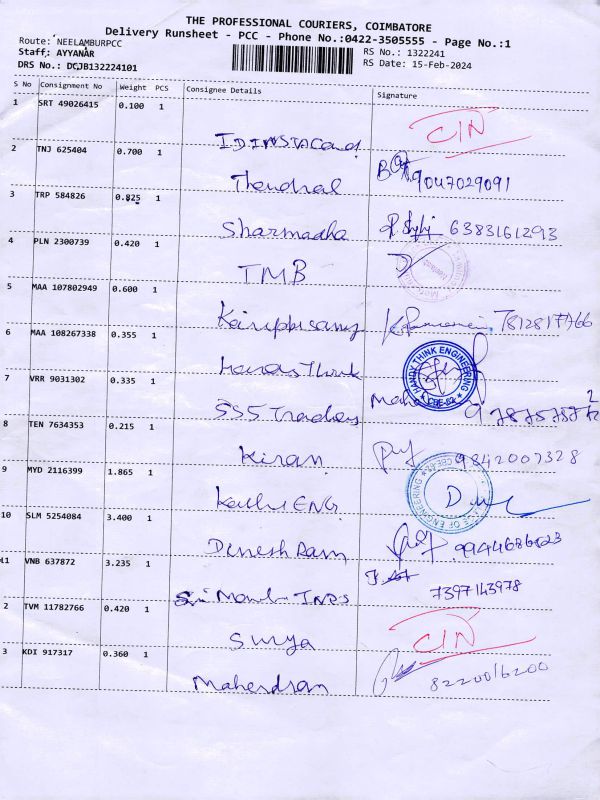 THE PROFESSIONAL COURIERS, COIMBATORE
Delivery Runsheet - PCC - Phone No.:0422-3505555 - Page No.:1
Route: NEELAMBURPCC
RS No.: 1322241
Staff: AYYANAR
RS Date: 15-Feb-2024
DRS No.: DCJB132224101
S No Consignment No Weight PCS Consignee Details Signature
1 SRT 49026415 0.100 1
CIN
2 TNJ 625404 0.700 1
Thendral 9047029091
3 TRP 584826 0.825 1
Sharmadha 6383161293
4 PLN 2300739 0.420 1
TMB
5 MAA 107802949 0.600 1
Karuppusamy 7812817766
6 MAA 108267338 0.355 1
HANDY THINK ENGINEERING
CBE-62
7 VRR 9031302 0.335 1
SSS Traders Maha
8 TEN 7634353 0.215 1
Kiran 9842007328
9 MYD 2116399 1.865 1
Kathi ENG.
OF ENGINEERING
10 SLM 5254084 3.400 1
Dinesh Ram
11 VNB 637872 3.235 1
7397143978
2 TVM 11782766 0.420 1
Surya CIN
3 KDI 917317 0.360 1
Mahendran 8220016200